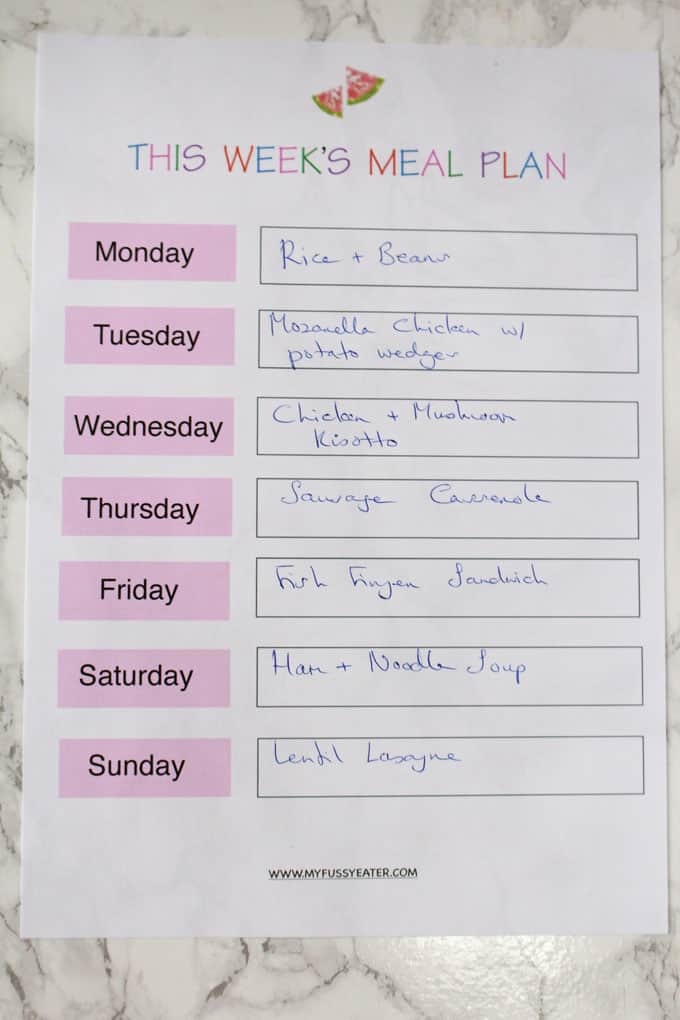 THIS WEEK'S MEAL PLAN
Monday
Rice + Beans
Tuesday
Mozarella Chicken w/
potato wedges
Wednesday
Chicken + Mushroom
Risotto
Thursday
Sausage Casserole
Friday
Fish Finger Sandwich
Saturday
Ham + Noodle Soup
Sunday
Lentil Lasagne
WWW.MYFUSSYEATER.COM